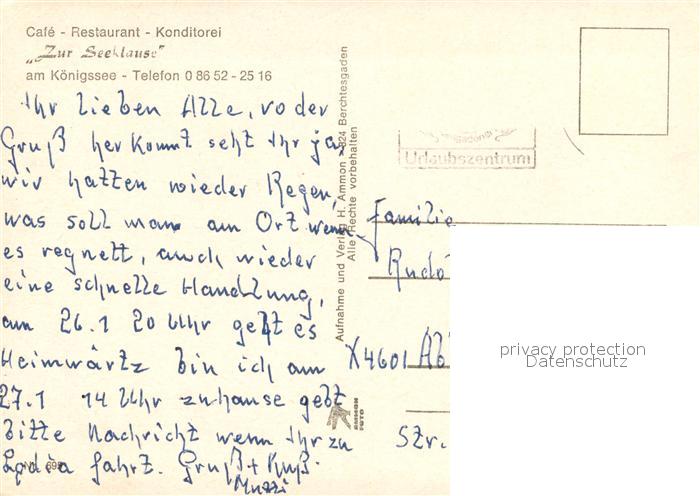 Café - Restaurant - Konditorei
„Zur Seeklause"
am Königssee - Telefon 0 86 52 - 25 16
Ihr lieben Alle, vo der
Gruß her kommt seht Ihr ja,
wir hatten wieder Regen,
was soll man am Ort wenn
es regnett, auch wieder
eine schnelle Handlung,
am 26.1 20 Uhr geht es
Heimwärtz bin ich am
27.1 14 Uhr zuhause gebt
bitte Nachricht wenn Ihr zu
Lydia fahrt. Gruß + Kuß.
Muzzi
Aufnahme und Verlag H. Ammon · 824 Berchtesgaden
Alle Rechte vorbehalten
AMMON
FOTO
Urlaubszentrum
Familie
Rudo
X4601 Ab
Str.
privacy protection
Datenschutz